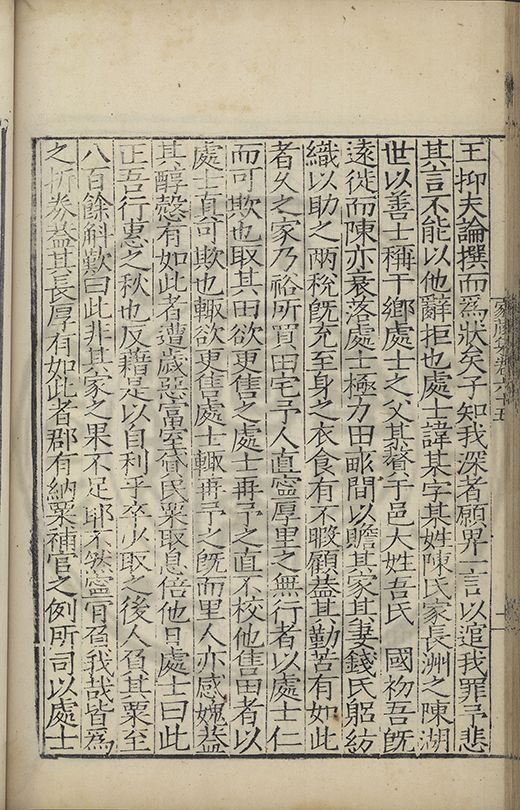 王抑夫論撰而為狀矣子知我深者願畀一言以逭我罪予悲
其言不能以他辭拒也處士諱某字某姓陳氏家長洲之陳湖
世以善士稱于鄉處士之父某贅于邑大姓吾氏 國初吾既
遠徙而陳亦衰落處士極力田畝間以贍其家其妻錢氏躬紡
織以助之两稅既充至身之衣食有不暇顧蓋其勤苦有如此
者久之家乃裕所買田宅予人直寧厚里之無行者以處士仁
而可欺也取其田欲更售之處士再予之直不校他售田者以
處士真可欺也輙欲更售處士輙再予之既而里人亦感媿蓋
其醇慤有如此者遭歲惡富室貸民粟取息倍他日處士曰此
正吾行惠之秋也反藉是以自利乎卒少取之後人負其粟至
八百餘斛歎曰此非其家之果不足耶不然寧肯負我哉皆為
之折券蓋其長厚有如此者郡有納粟補官之例所司以處士
家藏集卷六十五